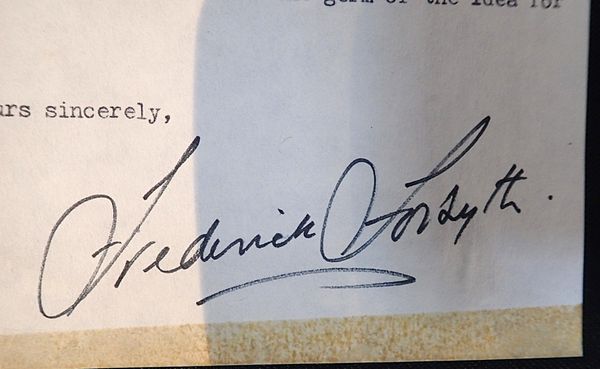 germ of the idea for
urs sincerely,
Frederick Forsyth.